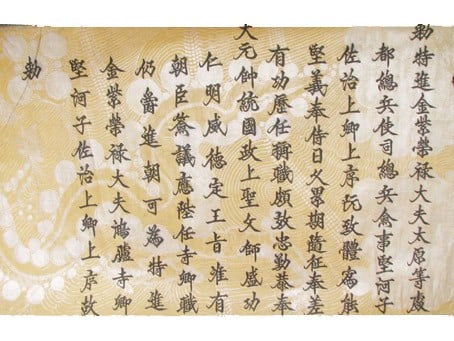 勑特進金紫榮祿大夫太原等處
都總兵使司總兵僉事堅河子
佐治上卿上序阮致體為能
堅義奉侍日久累期隨征奉差
有功歷任稱職頗效忠勤恭奉
大元帥統國政上聖父師盛功
仁明威德定王旨准有
朝臣僉議應陞任寺卿職
仍畨進朝可為特進
金紫榮祿大夫鴻臚寺卿
堅河子佐治上卿上序故
勑